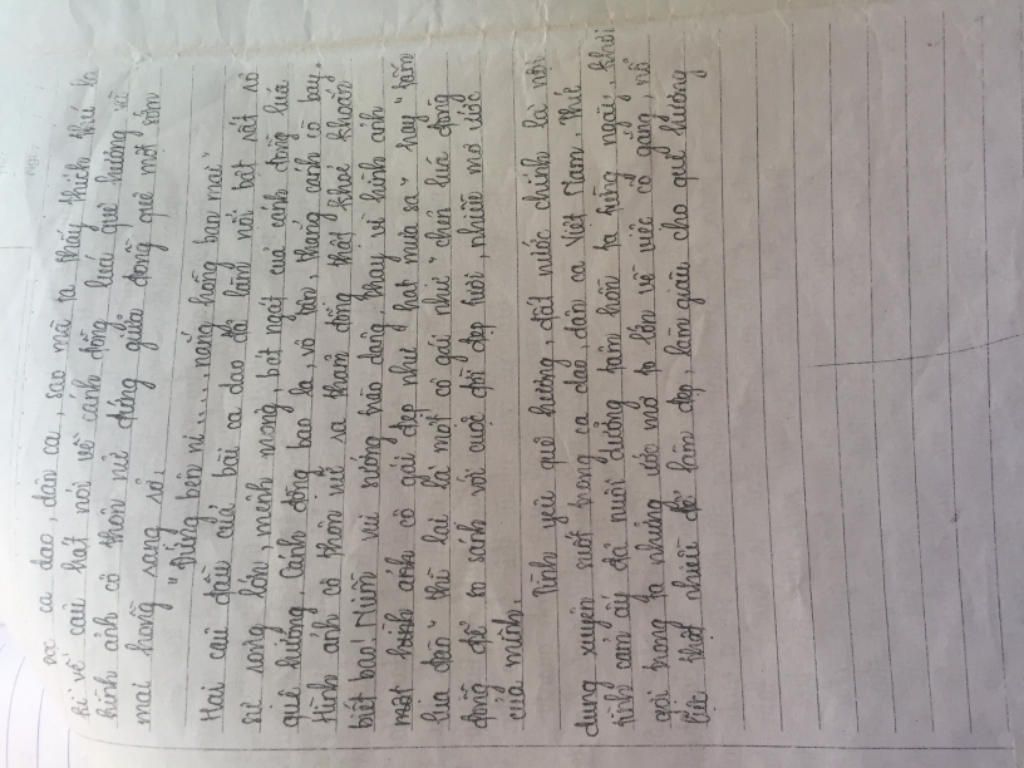 đọc ca dao, dân ca, sao mà ta thấy thích thú kh
hi về câu hát nói về cánh đồng lúa quê hương và
hình ảnh cô thôn nữ đứng giữa đồng quê một sớm
mai trong sang sở:
"Đứng bên ni..... nắng hồng ban mai"
Hai câu đầu của bài ca dao đã làng nổi bật rất rõ
sự rộng lớn, mênh mông, bát ngát của cánh đồng lúa
quê hương. Cánh đồng bao la, vô tận, thẳng cánh cò bay.
Hình ảnh cô thôn nữ ra thăm đồng thật khoẻ khoắn
biết bao! Niềm vui sướng trào dâng, thay vì hình ảnh
mặt hình ảnh cô gái đẹp như "hạt mưa sa" hay "tấm
lụa đào" thì lại là một cô gái như "chẽn lúa đòng
đòng để so sánh với cuộc đời đẹp tươi, nhiều mơ ước
của mình.
Tình yêu quê hương, đất nước chính là nội
dung xuyên suốt trong ca dao, dân ca Việt Nam. Thứ
tình cảm ấy đã nuôi dưỡng tâm hồn ta từng ngày, khơi
gợi trong ta những ước mơ to lớn về việc cố gắng, nỗ
lực thật nhiều để làm đẹp, làm giàu cho quê hương